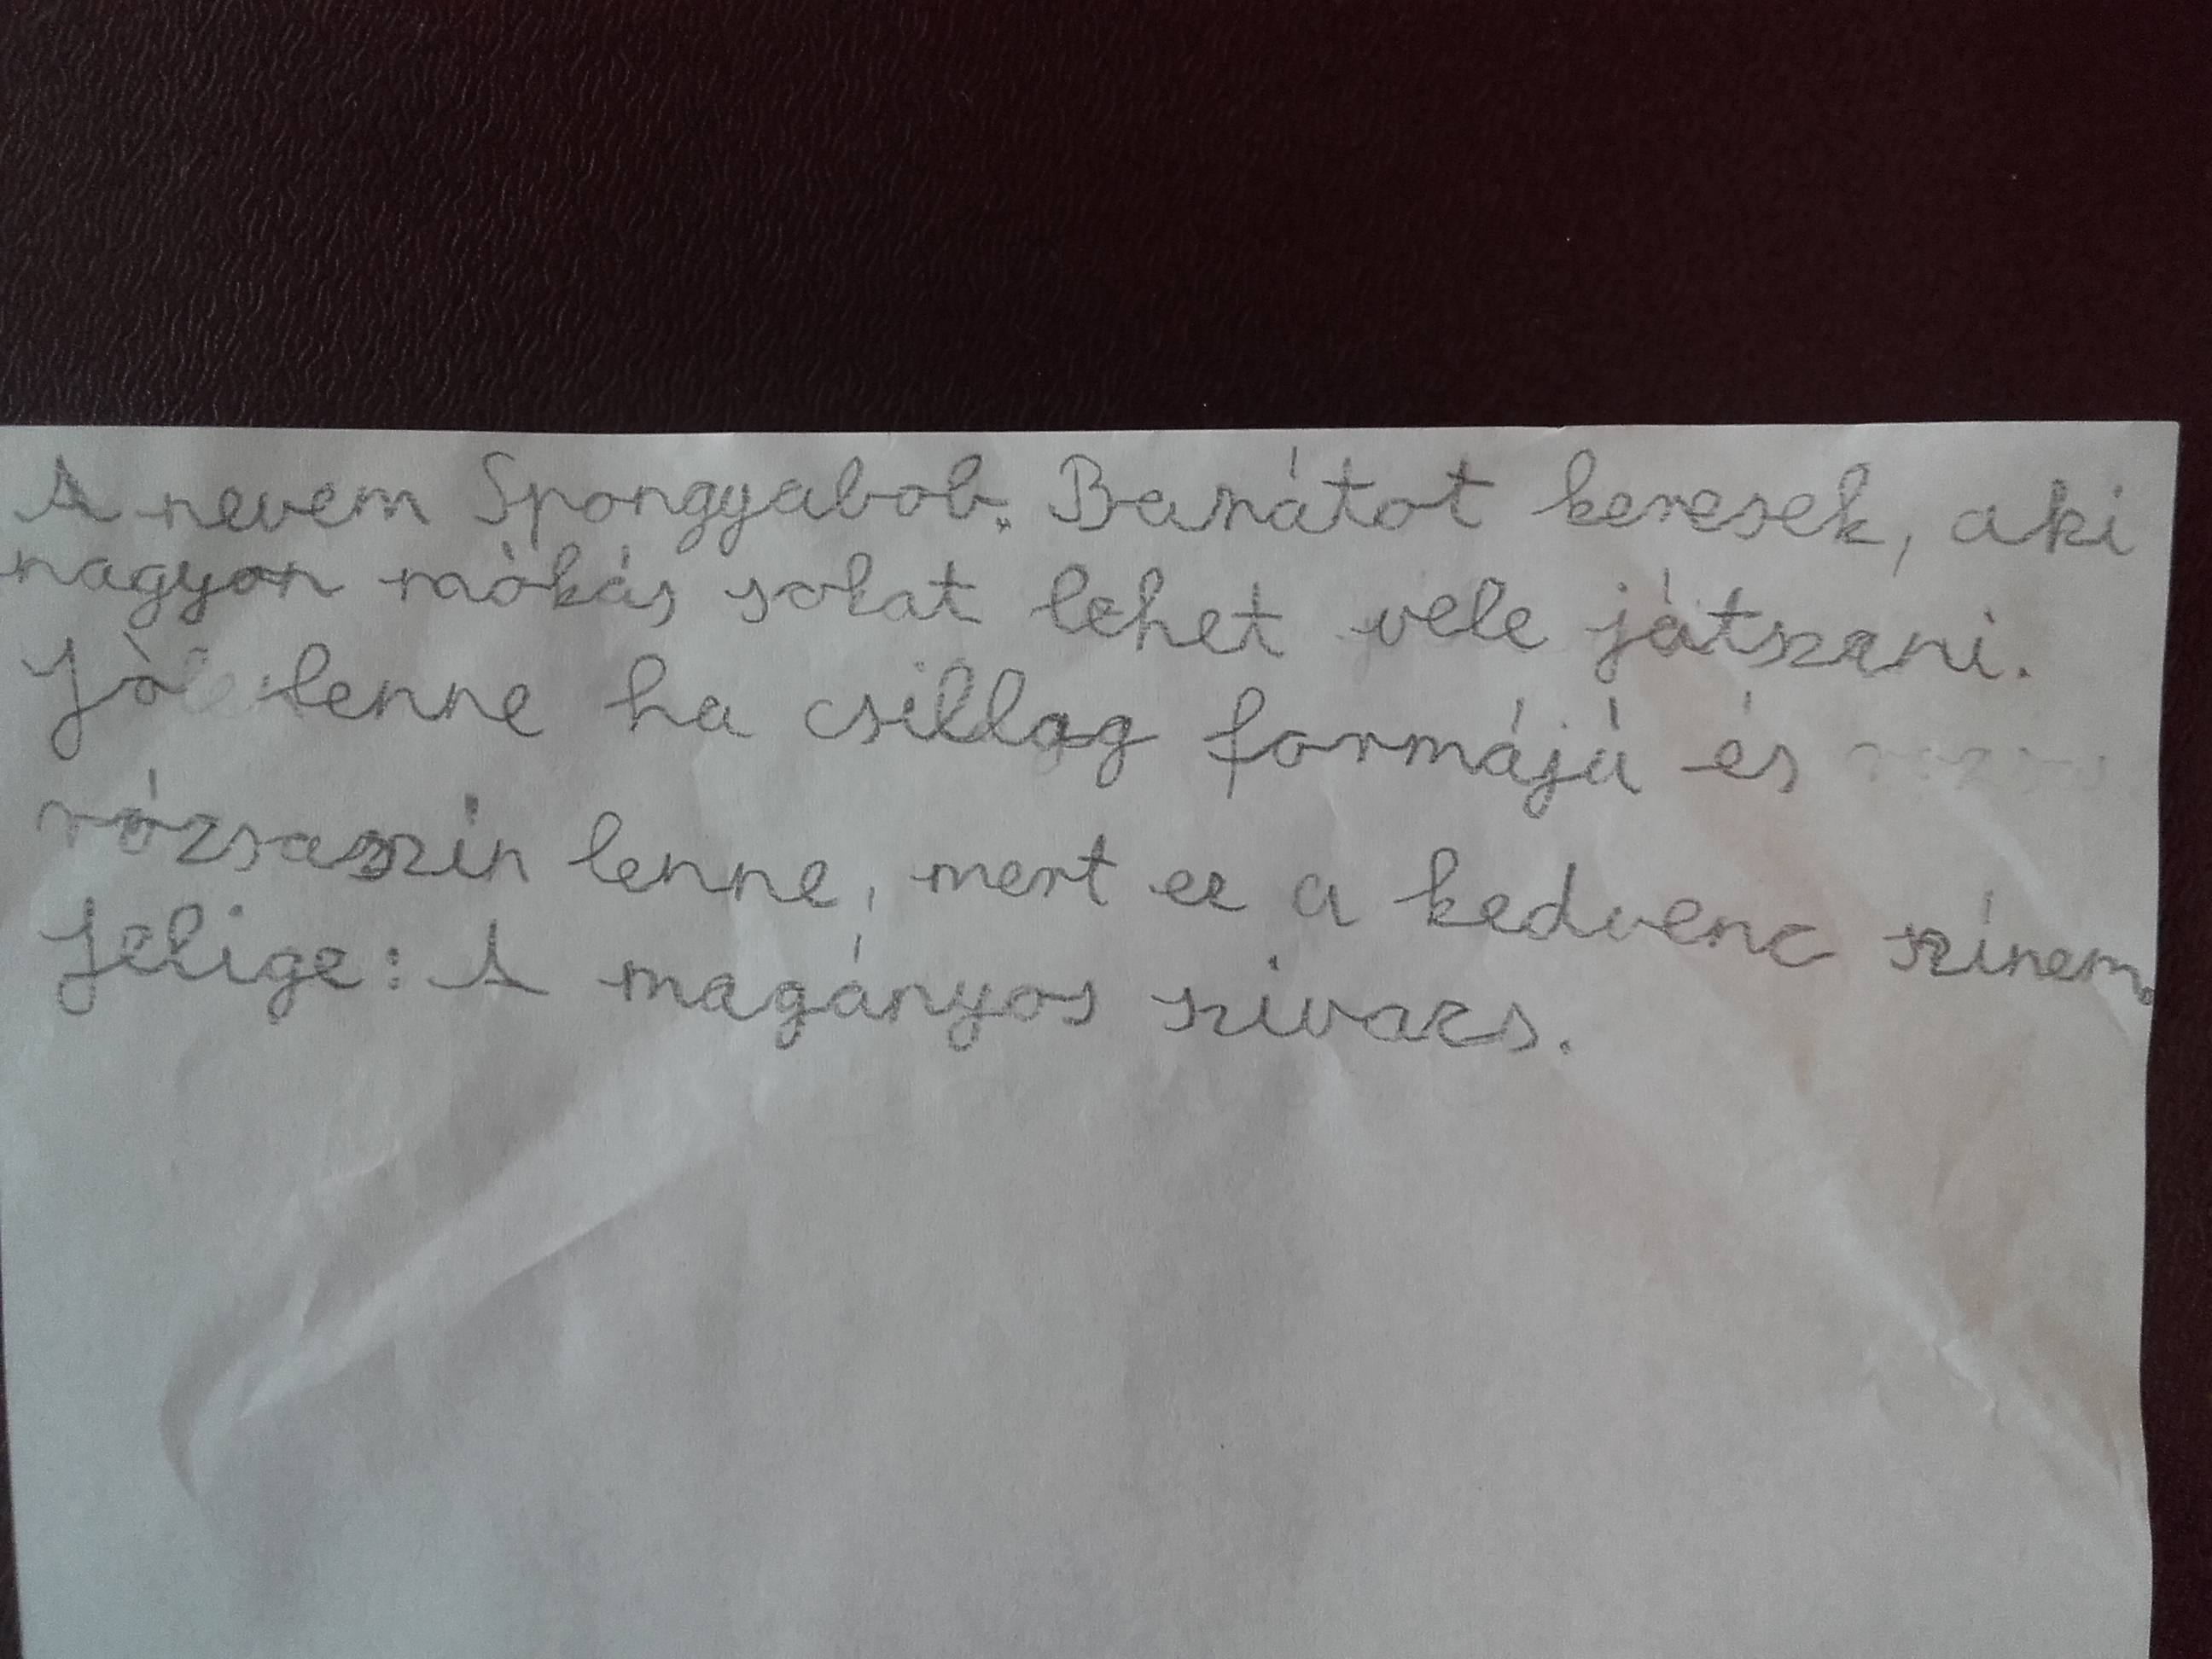 A nevem Spongyabob. Barátot keresek, aki
nagyon mókás sokat lehet vele játszani.
Jó lenne ha csillag formájú és
rózsaszín lenne, mert ez a kedvenc színem.
Jelige: A magányos szivacs.